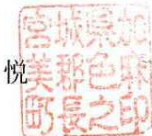 悦
宮城県加
美郡色麻
町長之印